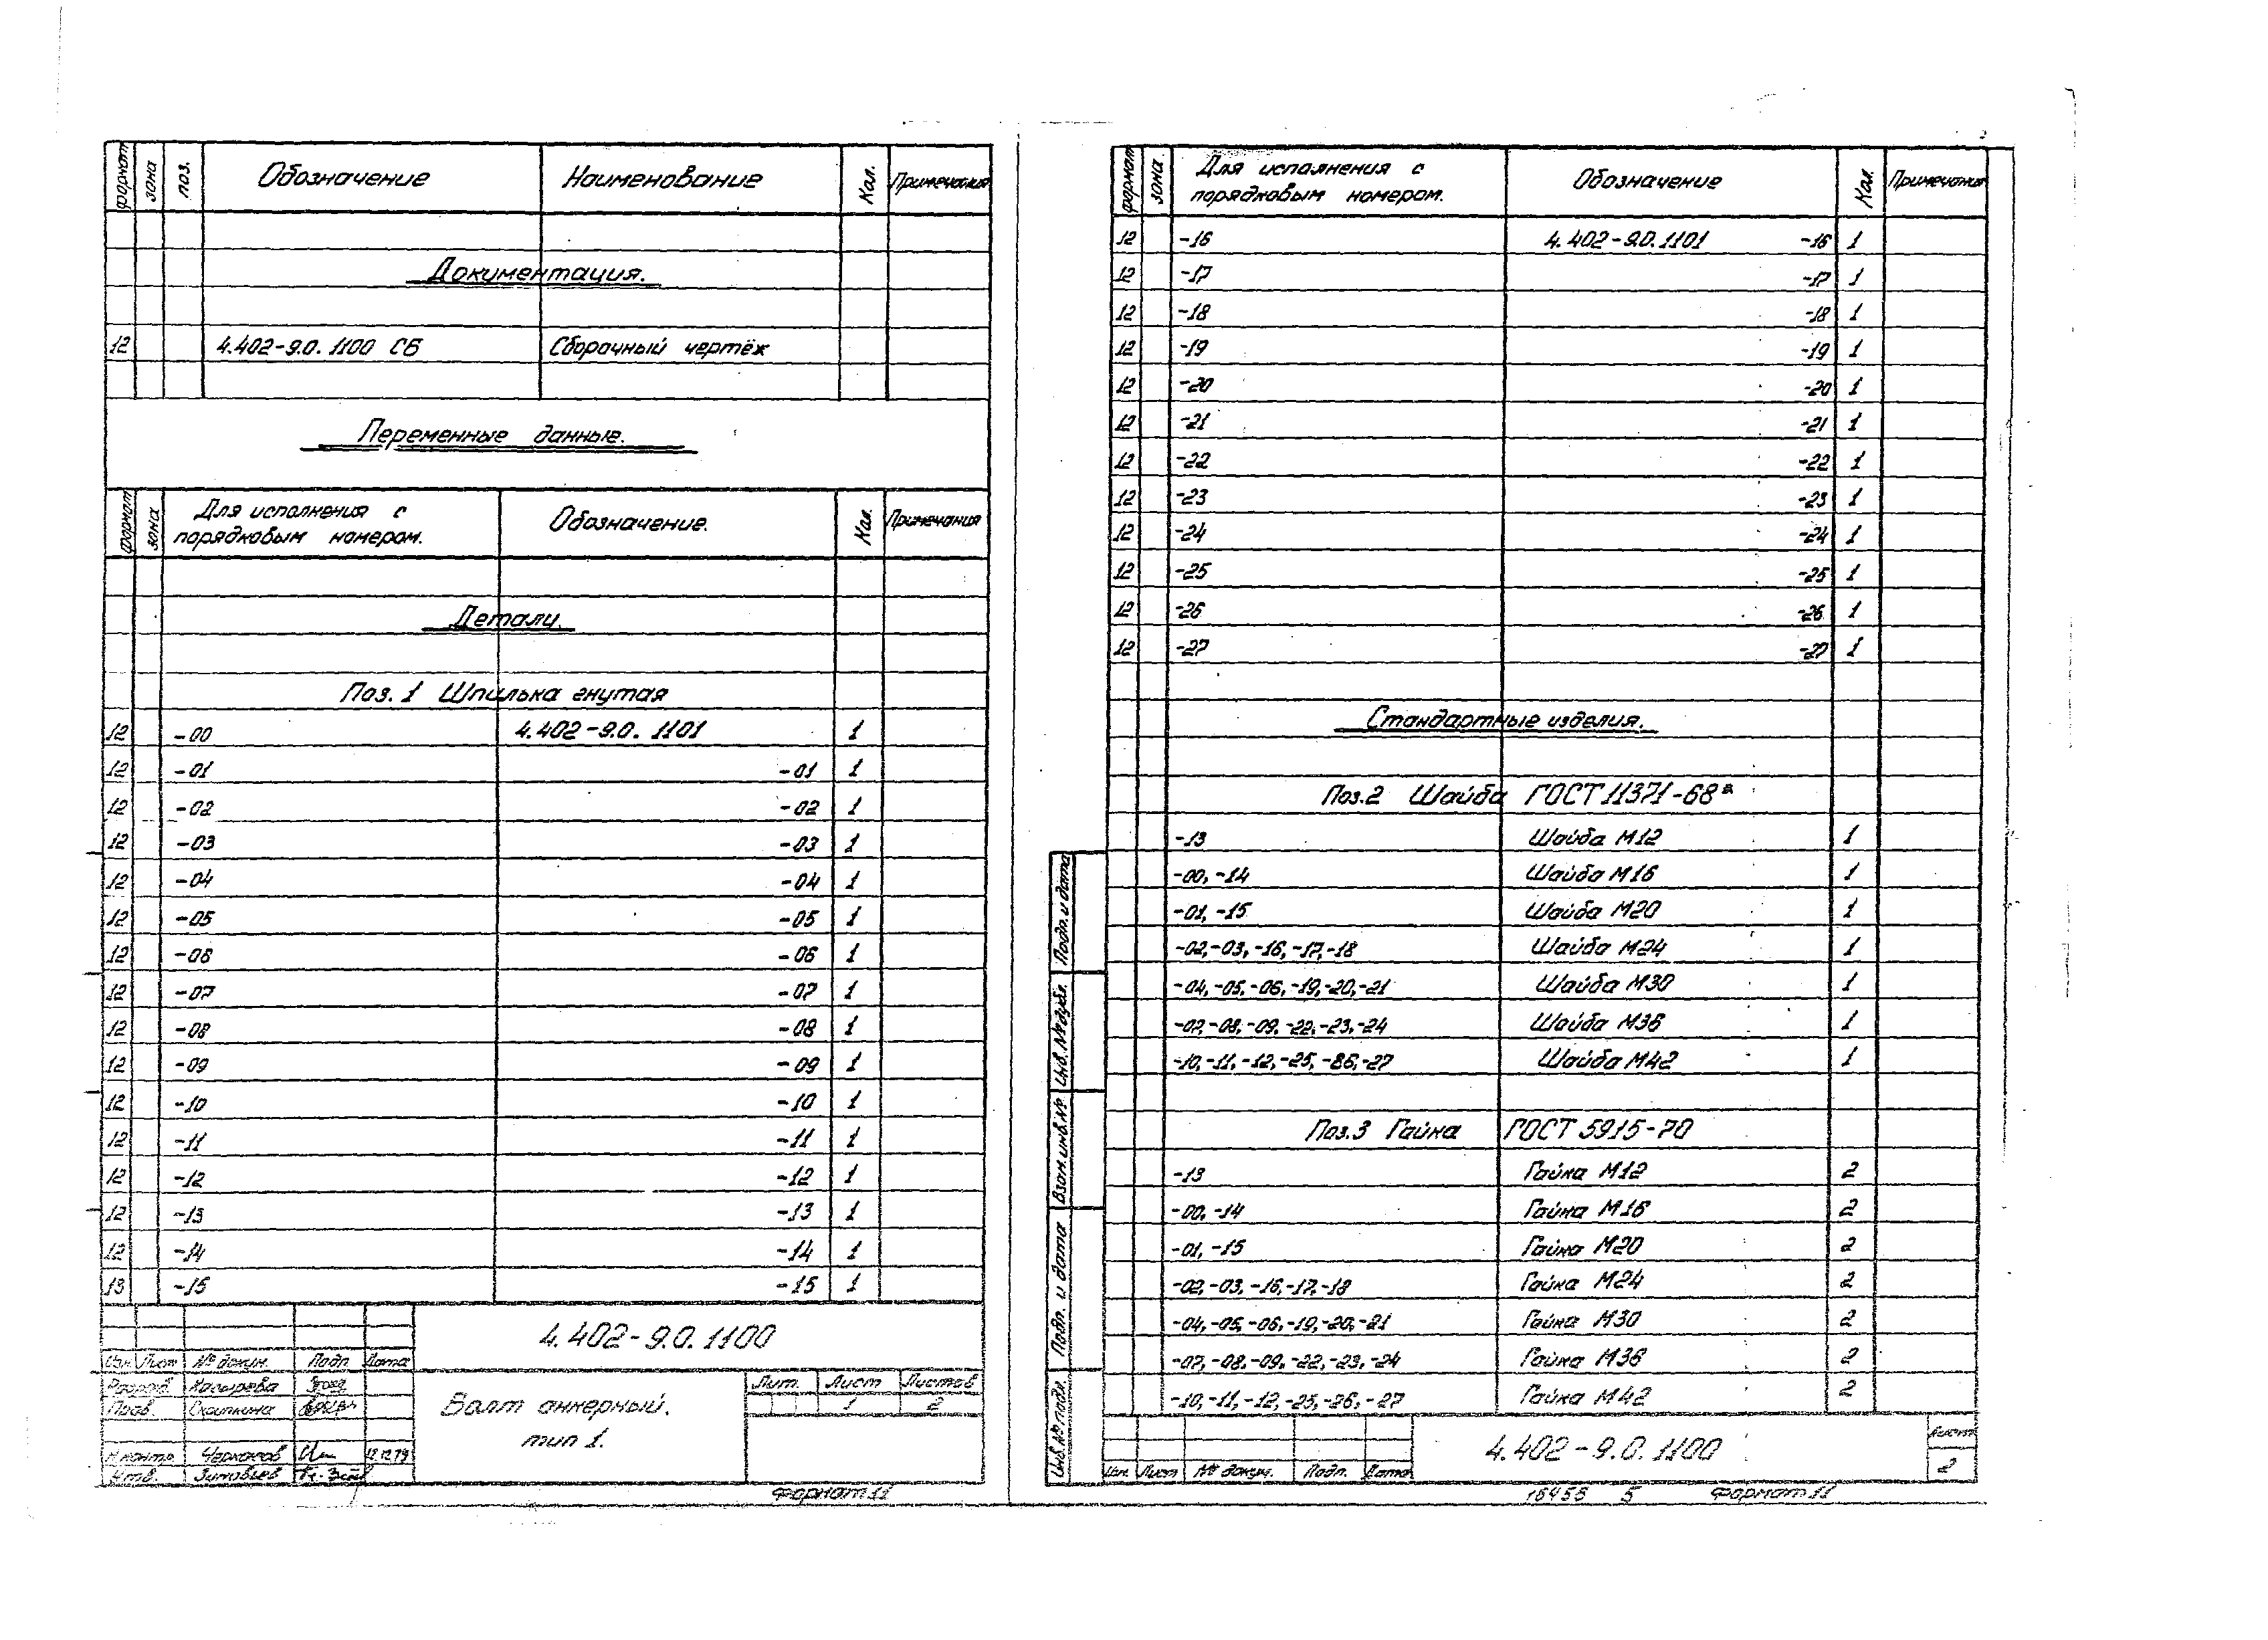 формат зона поз. Обозначение Наименование Кол. Примечания
Документация.
12 4.402-9.0. 1100 СБ Сборочный чертёж
Переменные данные.
формат зона Для исполнения с порядковым номером. Обозначение. Кол. Примечания
Детали.
Поз. 1 Шпилька гнутая
12 -00 4.402-9.0. 1101 1
12 -01 -01 1
12 -02 -02 1
12 -03 -03 1
12 -04 -04 1
12 -05 -05 1
12 -06 -06 1
12 -07 -07 1
12 -08 -08 1
12 -09 -09 1
12 -10 -10 1
12 -11 -11 1
12 -12 -12 1
12 -13 -13 1
12 -14 -14 1
13 -15 -15 1
4.402-9.0.1100
Изм. Лист № докум. Подп. Дата
Разраб. Касырева
Пров. Скрипкина
Н.контр. Черкасов 12.12.79
Утв. Зиновьев
Болт анкерный.
тип 1.
Лит. Лист Листов
1 2
Формат 11
формат зона Для исполнения с порядковым номером. Обозначение Кол. Примечания
12 -16 4.402-9.0.1101 -16 1
12 -17 -17 1
12 -18 -18 1
12 -19 -19 1
12 -20 -20 1
12 -21 -21 1
12 -22 -22 1
12 -23 -23 1
12 -24 -24 1
12 -25 -25 1
12 -26 -26 1
12 -27 -27 1
Стандартные изделия.
Поз.2 Шайба ГОСТ 11371-68*
-13 Шайба М12 1
-00, -14 Шайба М16 1
-01, -15 Шайба М20 1
-02,-03,-16,-17,-18 Шайба М24 1
-04,-05,-06,-19,-20,-21 Шайба М30 1
-07,-08,-09,-22,-23,-24 Шайба М36 1
-10,-11,-12,-25,-86,-27 Шайба М42 1
Поз.3 Гайка ГОСТ 5915-70
-13 Гайка М12 2
-00, -14 Гайка М16 2
-01, -15 Гайка М20 2
-02,-03,-16,-17,-18 Гайка М24 2
-04,-05,-06,-19,-20,-21 Гайка М30 2
-07,-08,-09,-22,-23,-24 Гайка М36 2
-10,-11,-12,-25,-26,-27 Гайка М42 2
Подп. и дата
Инв. № дубл.
Взам. инв. №
Подп. и дата
Инв. № подл.
Изм. Лист № докум. Подп. Дата
4.402-9.0.1100
Лист
2
16456 5 Формат 11